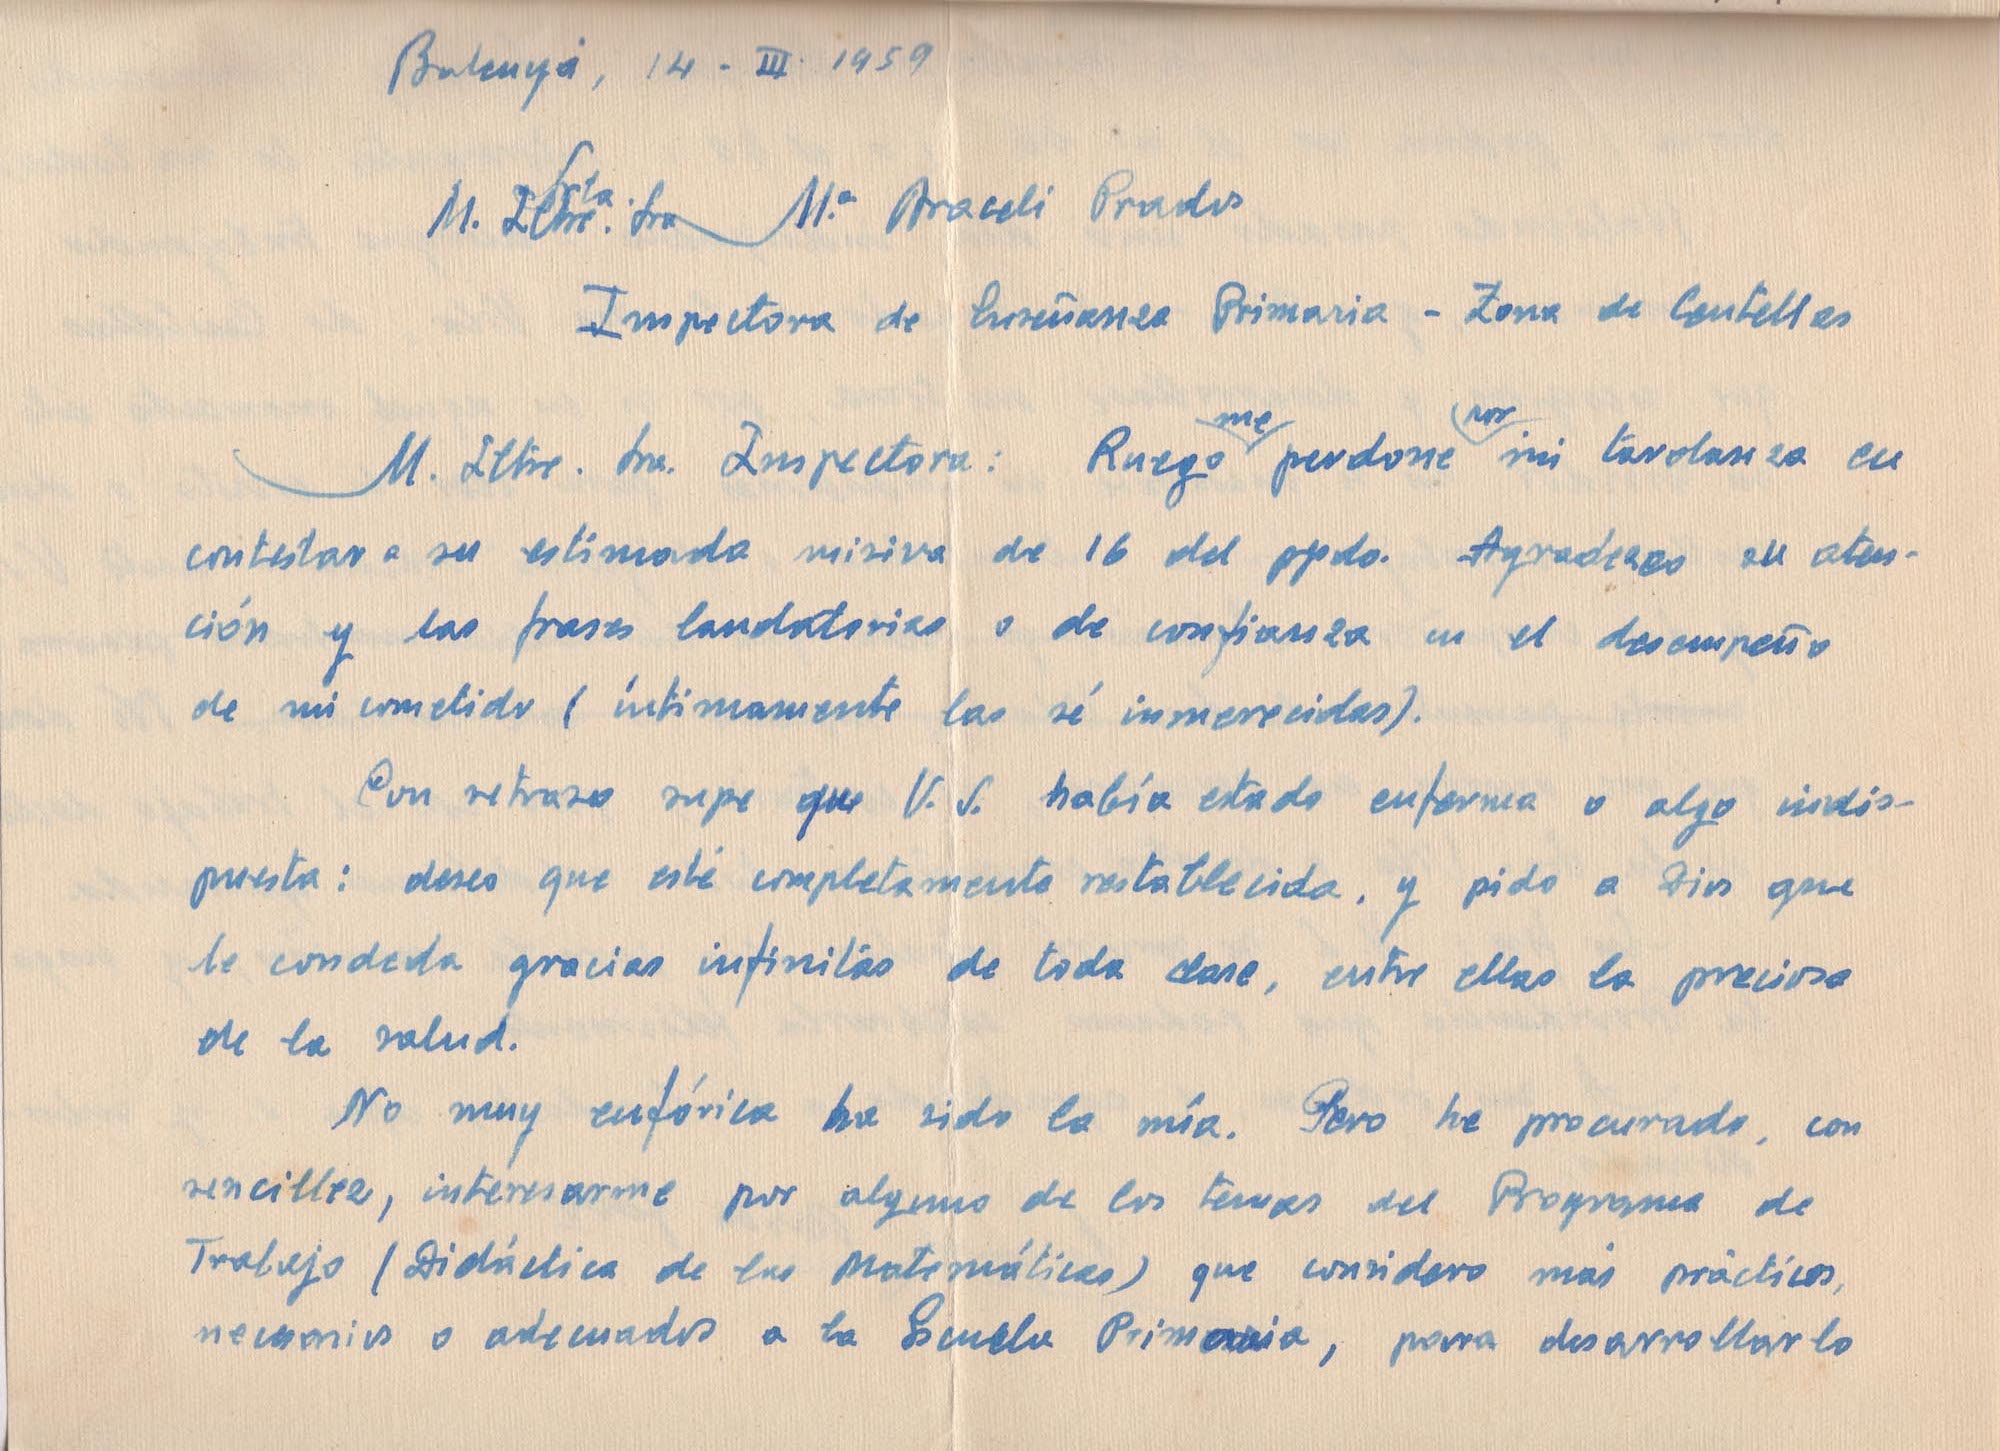 Balenyá, 14 - III - 1959
Srta.
M. Iltre. Sra M.ª Araceli Prados
Inspectora de Enseñanza Primaria - Zona de Centellas
M. Iltre. Sra. Inspectora: Ruego me perdone por mi tardanza en
contestar a su estimada misiva de 16 del ppdo. Agradezco su aten-
ción y las frases laudatorias o de confianza en el desempeño
de mi cometido (íntimamente las sé inmerecidas).
Con retraso supe que V. S. había estado enferma o algo indis-
puesta: deseo que esté completamente restablecida, y pido a Dios que
le condeda gracias infinitas de toda clase, entre ellas la preciosa
de la salud.
No muy eufórica ha sido la mía. Pero he procurado, con
sencillez, interesarme por alguno de los temas del Programa de
Trabajo (Didáctica de las Matemáticas) que considero más prácticos,
necesarios o adecuados a la Escuela Primaria, para desarrollarlo